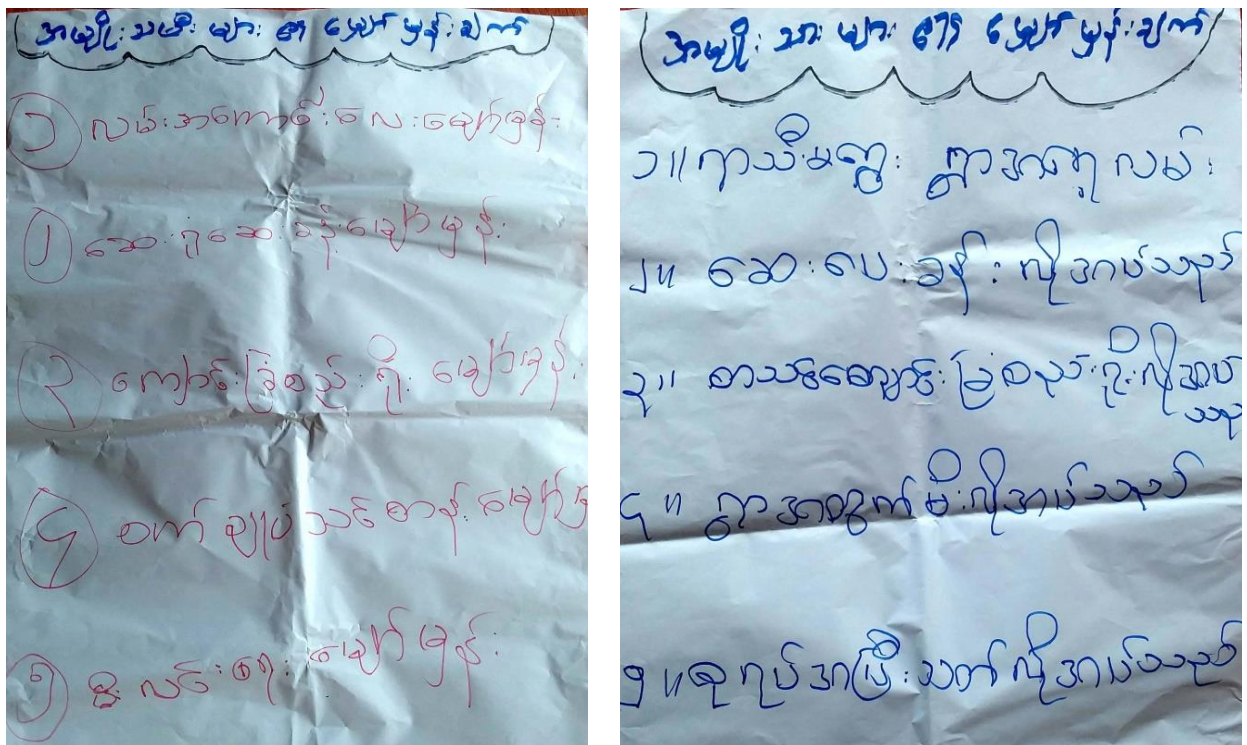 အမျိုးသမီးများ၏ မျှော်မှန်းချက်
၁ လမ်းအကောင်းလေးမျှော်မှန်း
၂ ဆေးရုံဆေးခန်းမျှော်မှန်း
၃ ကျောင်းခြံစည်းရိုး မျှော်မှန်း
၄ စက်ချုပ်သင်တန်းမျှော်
၅ မီးလင်းရေးမျှော်မှန်း
အမျိုးသားများ၏ မျှော်မှန်းချက်
၁။ ရာသီမရွေး ရွာအရောက်လမ်း
၂။ ဆေးပေးခန်းလိုအပ်သည်
၃။ စာသင်ကျောင်းခြံစည်းရိုးလိုအပ်
သည်
၄။ ရွာအတွက်မီးလိုအပ်သည်
၅။ စုရပ်အပြီးသတ်လိုအပ်သည်